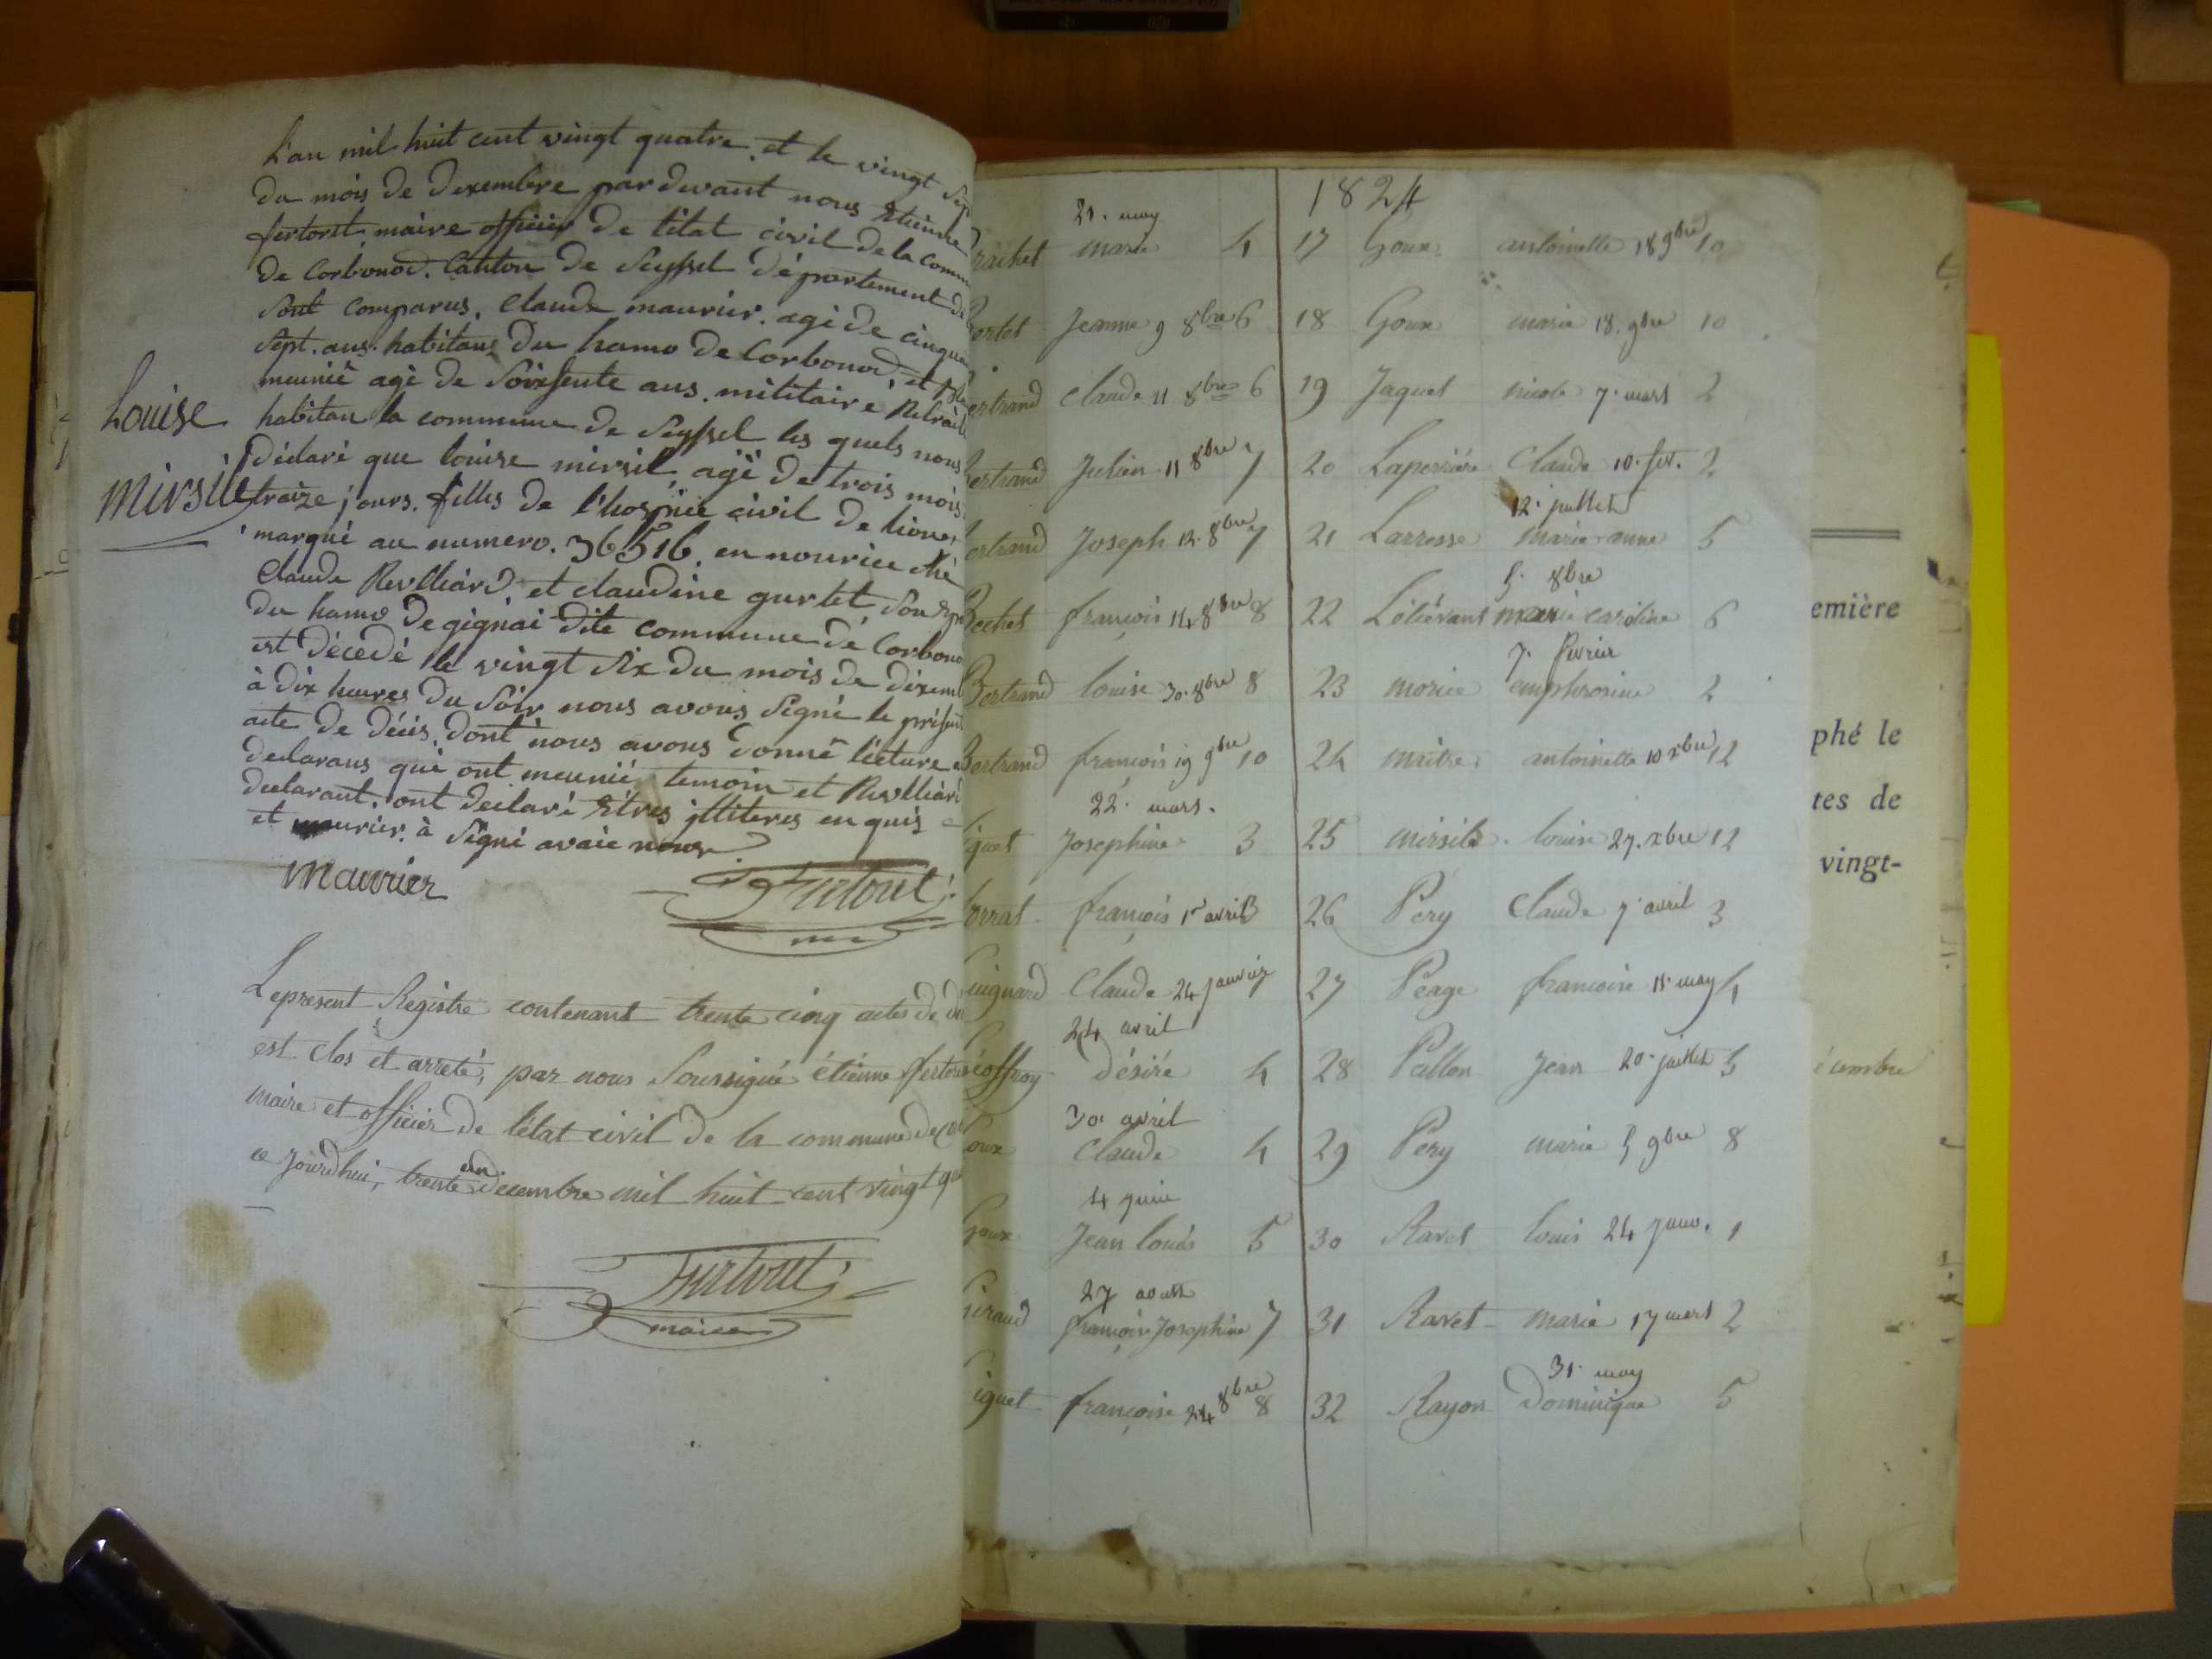 L'an mil huit cent vingt quatre et le vingt sep
du mois de dexembre par devant nous Etienne
fertoret maire officier de l'état civil de la comm
de Corbonod. Canton de Seyssel département de
sont comparus, Claude maurier. agé de cinqua
sept. ans. habitans du hamo de Corbonod, et
meunié agé de Soixsente ans. militaire Retraité
habitan la commune de Seyssel les quels nous
déclaré que louise mirsil, agé de trois mois
traize jours. filles de l'hospice civil de lion
marqué au numero. 36516. en nourice ché
Claude Revlliard. et claudine gurlet son
du hamo de gignai dite commune de Corbono
est décedé le vingt six du mois de dixemb
à dix heures du Soir nous avons Signé le présent
acte de décis. dont nous avons donné lécture
declarans qui ont meunié temoin et Revlliard
declarant. ont declaré Etres illiteres en quis
et maurier. à Signé avaic nous
Louise
Mirsile
maurier
Furtout
Le present Registre contenant trente cinq actes de dé
est clos et arreté, par nous Soussigné étiénne fertoret
maire et officier de l'état civil de la commune de Co
ce jourdhui, trente un decembre mil huit cent vingt qu
Furtout
maire
1824
21. may
rachet marie 4 17 Goux antoinette 18 9bre 10
ertet Jeanne 9 8bre 6 18 Goux marie 18. 9bre 10
ertrand Claude 11 8bre 6 19 Jaquet nicole 7. mars 2
ertrand Julien 11 8bre 7 20 Laperriére Claude 10. fev. 2
12. juillet
ertrand Joseph 12. 8bre 7 21 Larrosse marie anne 5
5. 8bre
Bechet françois 14 8bre 8 22 Léliévant marie caroline 6
7. février
Bertrand louise 30. 8bre 8 23 morice emphrosine 2
Bertrand françois 19 9bre 10 24 maitre antoinette 10 xbre 12
22. mars.
iguet Josephine 3 25 mirsile louise 27. xbre 12
orrat françois 1er avril 3 26 Pery Claude 7 avril 3
uignard Claude 24 janvier 27 Péage francoise 15 may 4
24 avril
éoffroy désiré 4 28 Pallon jean 20. juillet 5
30. avril
oux Claude 4 29 Pery marie 5 9bre 8
4 juin
Goux Jean louis 5 30 Ravet louis 24 janv. 1
27 aoust
iraud françoise Josephine 7 31 Ravet marie 17 mars 2
31. may
iguet françoise 24 8bre 8 32 Rayon Dominique 5
emière
phé le
tes de
vingt-
écembre